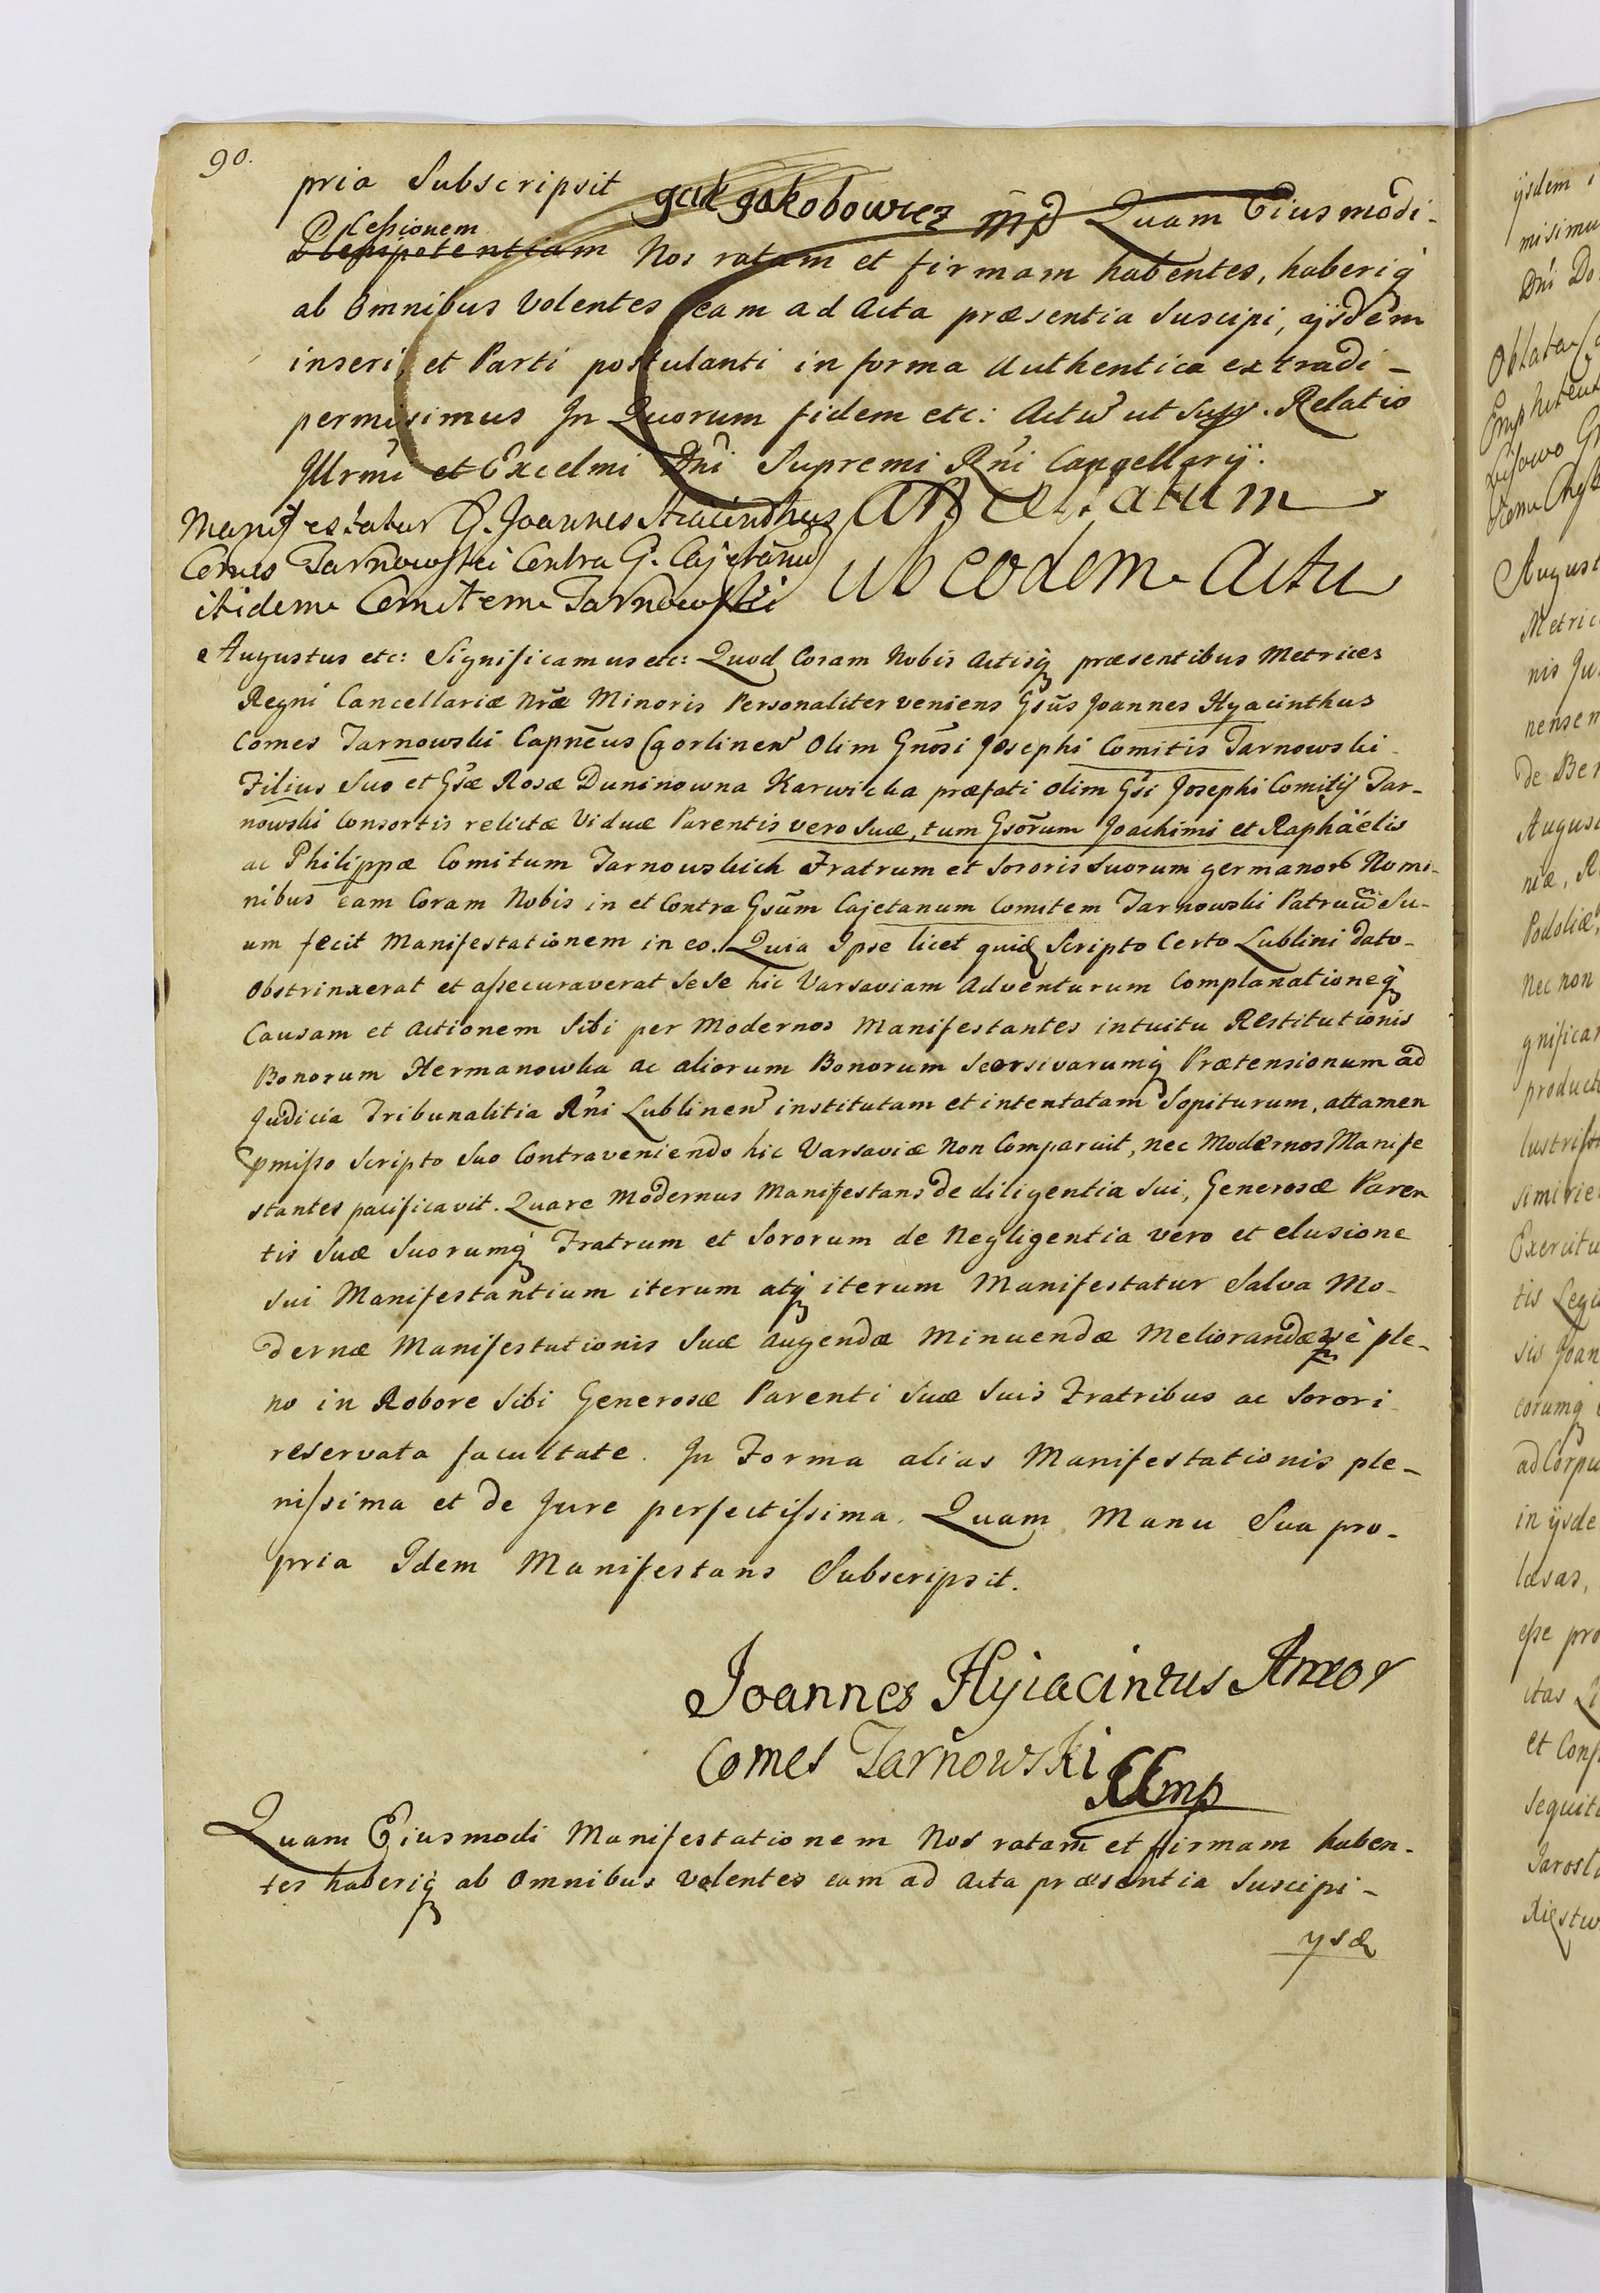 90.
pria Subscripsit Jak Jakobowicz mp Quam Eiusmodi-
Cessionem
Plenipotentiam Nos ratam et firmam habentes, haberiq
ab Omnibus Volentes eam ad Acta præsentia Suscipi, ijsdem
inseri, et Parti postulanti in forma Authentica extradi-
permisimus In Quorum fidem etc: Actũ ut Supr. Relatio
Illrmi et Excelmi Dni Supremi Rni Cancellarij.
Cancellatum
Manifestatur G. Joannes Hiacinthus
Comes Tarnowski Contra G. Cajetanũ
itidem Comitem Tarnowski
ub eodem Actu
Augustus etc: Significamus etc: Quod Coram Nobis Actisq præsentibus Metrices
Regni Cancellariæ Nræ Minoris Personaliter veniens Gsũs Joannes Hyacinthus
Comes Tarnowski Capnẽus Gorlinen Olim Gnõsi Josephi Comitis Tarnowski
Filius Suo et Gsæ Rosæ Duninowna Karwicka præfati olim Gsi Josephi Comitis Tar-
nowski Consortis relictæ Viduæ Parentis vero Suæ, tum Gsõrum Joachimi et Raphaélis
ac Philippæ Comitum Tarnowskich Fratrum et Sororis Suorum germanor Nomi-
nibus eam Coram Nobis in et Contra Gsũm Cajetanum Comitem Tarnowski Patruũ Su-
um fecit Manifestationem in eo. Quia Ipse licet quid Scripto Certo Lublini dato-
Obstrinxerat et assecuraverat Sese hic Varsaviam Adventurum Complanationeq
Causam et Actionem Sibi per Modernos Manifestantes intuitu Restitutionis
Bonorum Hermanowka ac aliorum Bonorum Seorsivarumq Prætensionum ad
Judicia Tribunalitia Rni Lublinen institutam et intentatam Sopiturum, attamen
pmisso Scripto Suo Contraveniendo hic Varsaviæ Non Comparuit, nec Modernos Manife
stantes pacificavit. Quare Modernus Manifestans de diligentia Sui, Generosæ Paren
tis Suæ Suorumq Fratrum et Sororum de Negligentia vero et elusione
Sui Manifestantium iterum atq iterum Manifestatur Salva Mo-
dernæ Manifestationis Suæ augendæ Minuendæ Meliorandæq è ple-
no in Robore Sibi Generosæ Parenti Suæ Suis Fratribus ac Sorori
reservata facultate. In Forma alias Manifestationis ple-
nissima et de Jure perfectissima. Quam Manu Sua pro-
pria Idem Manifestans Subscripsit.
Joannes Hyiacintus Amor
Comes Tarnowski
mp
Quam Eiusmodi Manifestationem Nos ratam et firmam haben-
tes haberiq ab Omnibus Volentes eam ad Acta præsentia Suscipi-
ysd
ijsdem i
misimu
Dni Do
Oblata
Emphiteut
August
Metric
nis Ju
nensem
de Ber
August
niæ, R
Podoliæ,
Nec non
gnificar
product
lustriss
simi vie
Exercitu
tis Legi
sis Joan
eorumq
ad Corpu
in ijsde
læsas,
esse pro
itas
et Cons
sequit
Jarosl